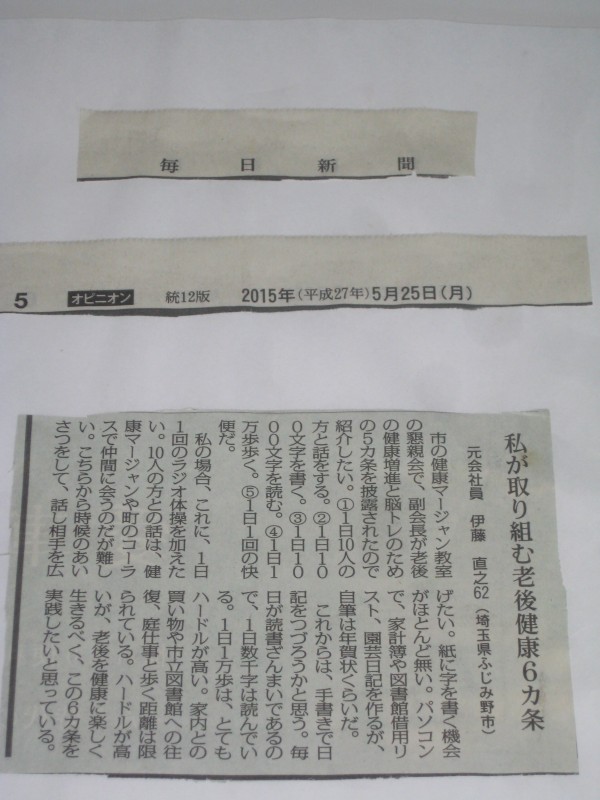 毎日新聞
5 オピニオン 統12版 2015年(平成27年)5月25日(月)
私が取り組む老後健康6カ条
元会社員 伊藤 直之62(埼玉県ふじみ野市)
市の健康マージャン教室
の懇親会で、副会長が老後
の健康増進と脳トレのため
の5カ条を披露されたので
紹介したい。①1日10人の
方と話をする。②1日10
0文字を書く。③1日10
00文字を読む。④1日1
万歩歩く。⑤1日1回の快
便だ。
私の場合、これに、1日
1回のラジオ体操を加えた
い。10人の方との話は、健
康マージャンや町のコーラ
スで仲間に会うのだが難し
い。こちらから時候のあい
さつをして、話し相手を広
げたい。紙に字を書く機会
がほとんど無い。パソコン
で、家計簿や図書館借用リ
スト、園芸日記を作るが、
自筆は年賀状くらいだ。
これからは、手書きで日
記をつづろうかと思う。毎
日が読書ざんまいであるの
で、1日数千字は読んでい
る。1日1万歩は、とても
ハードルが高い。家内との
買い物や市立図書館への往
復、庭仕事と歩く距離は限
られている。ハードルが高
いが、老後を健康に楽しく
生きるべく、この6カ条を
実践したいと思っている。